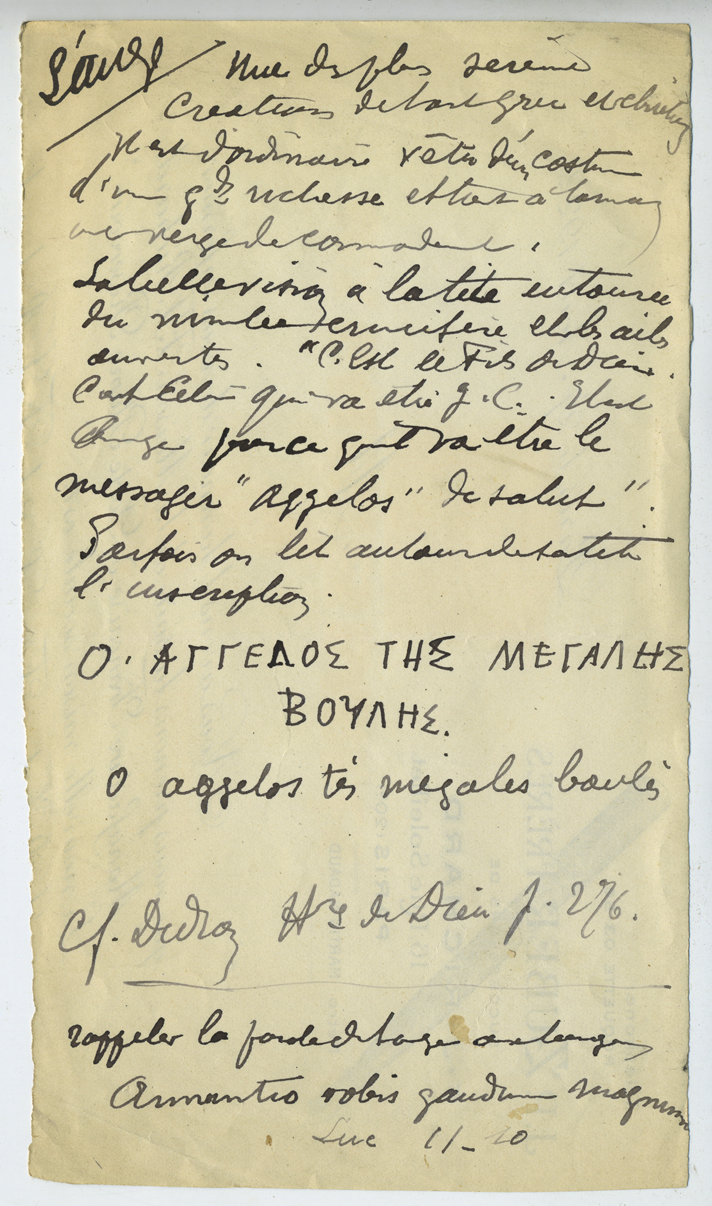 L'ange
Une des plus sereines
créations de l'art grec et chrétien
Il est d'ordinaire vêtu d'un costume
d'une gde richesse et tient à la main
une verge de commandement.
Sa belle vision a la tête entourée
du nimbe crucifère et les ailes
ouvertes. "C'est le Fils de Dieu.
C'est Celui qui va être J.C. Il est
Ange parce qu'il va être le
messager "aggelos" de salut".
Parfois on lit autour de sa tête
l'inscription.
Ο. ΑΓΓΕΛΟΣ ΤΗΣ ΜΕΓΑΛΗΣ
ΒΟΥΛΗΣ.
O aggelos tès mégales boulès
Cf. Didron Hre de Dieu p. 276.
rappeler la parole de l'ange aux bergers
Annuntio vobis gaudium magnum
Luc 11_10